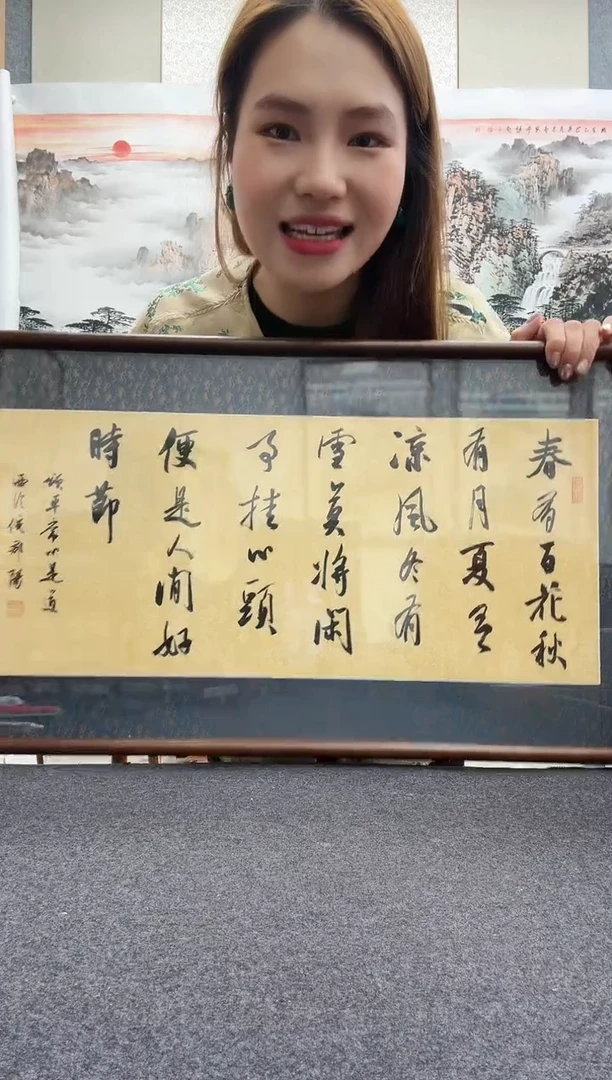 春有百花秋
有月夏有
涼風冬有
雪莫將閑
事挂心頭
便是人間好
時節
頌平常心是道